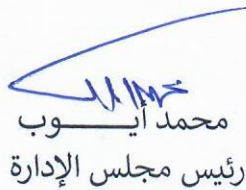 محمد أيـــــوب
رئيس مجلس الإدارة